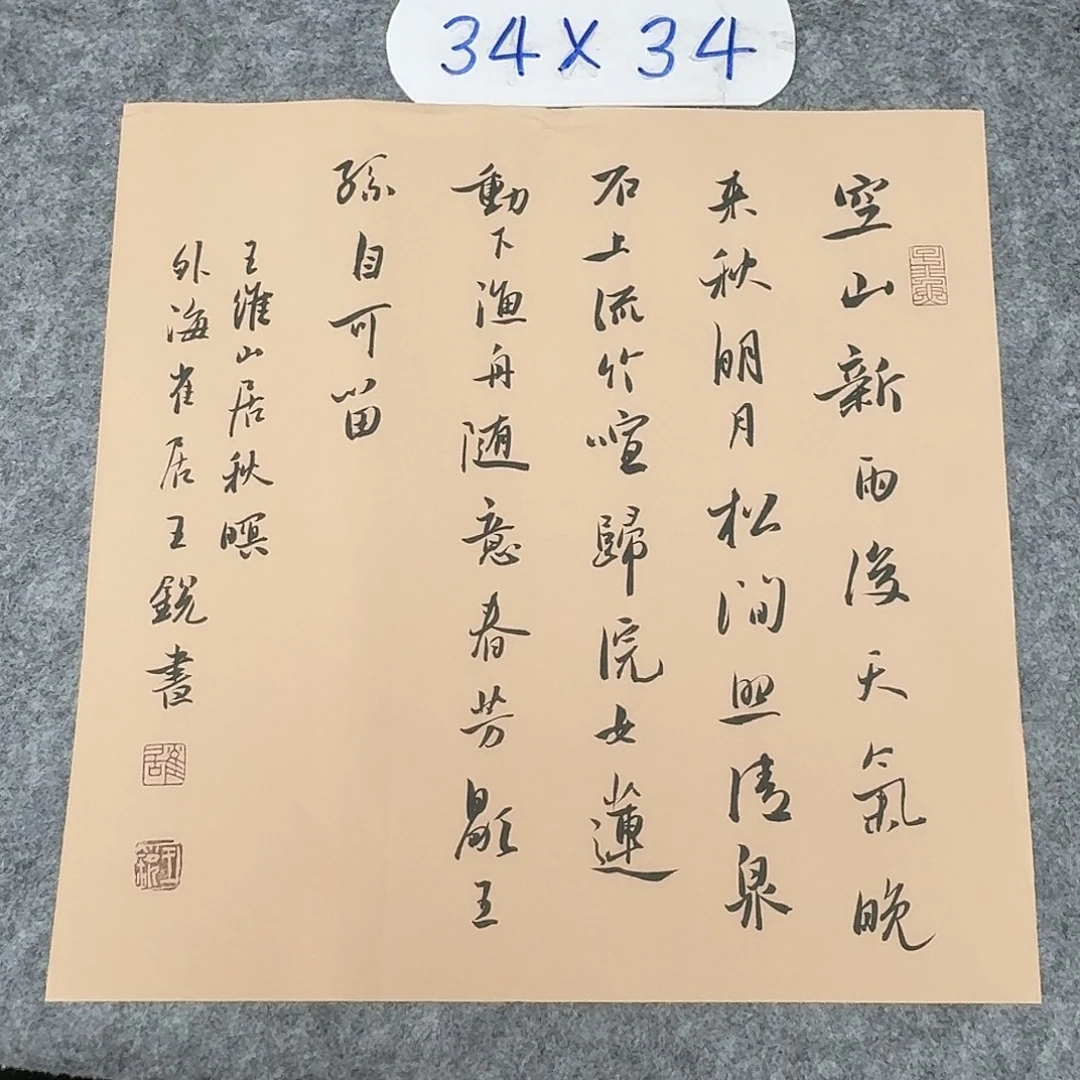 34 X 34
空山新雨後天氣晚
来秋明月松澗照清泉
石上流竹喧歸浣女蓮
動下漁舟随意春芳歇王
孫自可留
王維山居秋暝
外海雀居王銳書
雀居
王銳